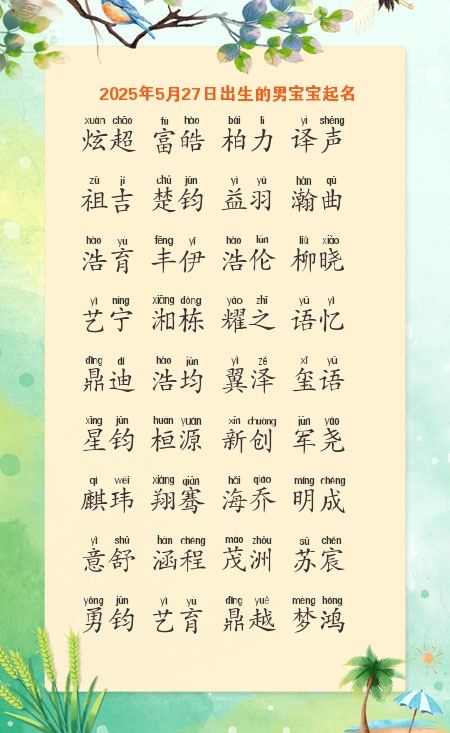 2025年5月27日出生的男宝宝起名
xuàn chāo fù hào bǎi lì yì shēng
炫超 富皓 柏力 译声
zǔ jí chǔ jūn yì yǔ hàn qǔ
祖吉 楚钧 益羽 瀚曲
hào yù fēng yī hào lún liǔ xiǎo
浩育 丰伊 浩伦 柳晓
yì níng xiāng dòng yào zhī yǔ yì
艺宁 湘栋 耀之 语忆
dǐng dí hào jūn yì zé xǐ yǔ
鼎迪 浩均 翼泽 玺语
xīng jūn huán yuán xīn chuàng jūn yáo
星钧 桓源 新创 军尧
qí wěi xiáng qiān hǎi qiáo míng chéng
麒玮 翔骞 海乔 明成
yì shū hán chéng mào zhōu sū chén
意舒 涵程 茂洲 苏宸
yǒng jūn yì yù dǐng yuè mèng hóng
勇钧 艺育 鼎越 梦鸿